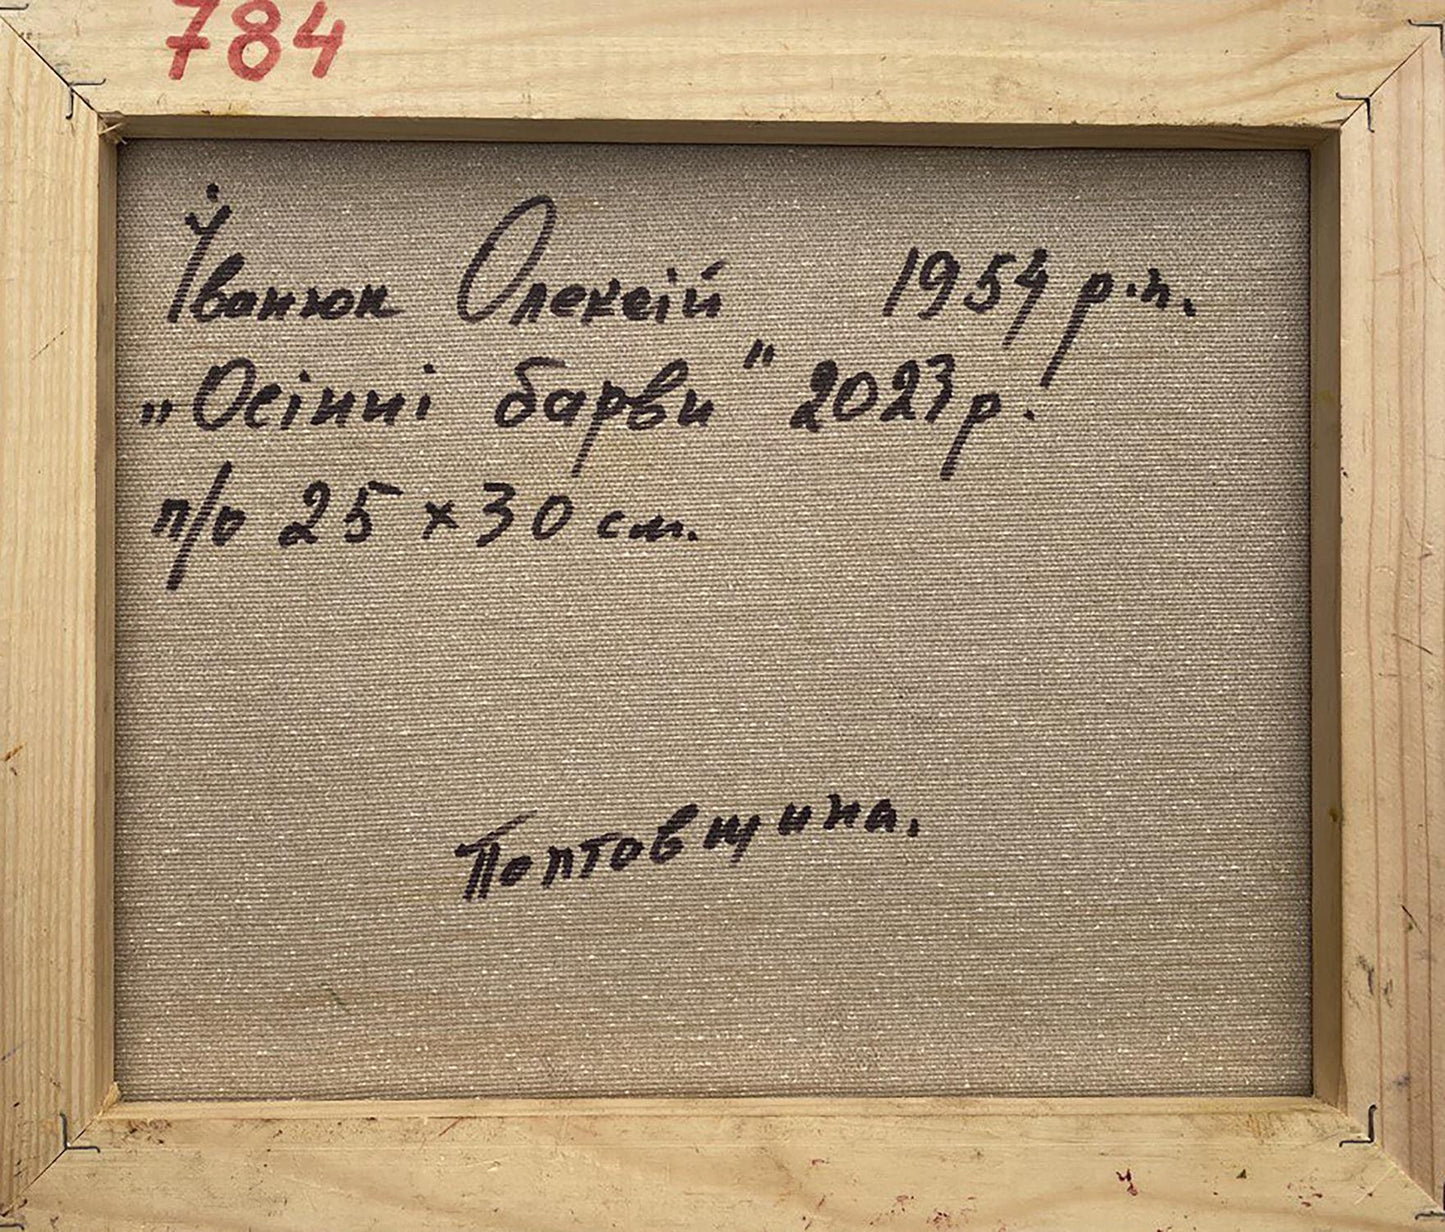 784
Іванюк Олексій 1954 р.н.
„Осінні барви" 2023 р.
п/о 25 × 30 см.
Полтовщина.